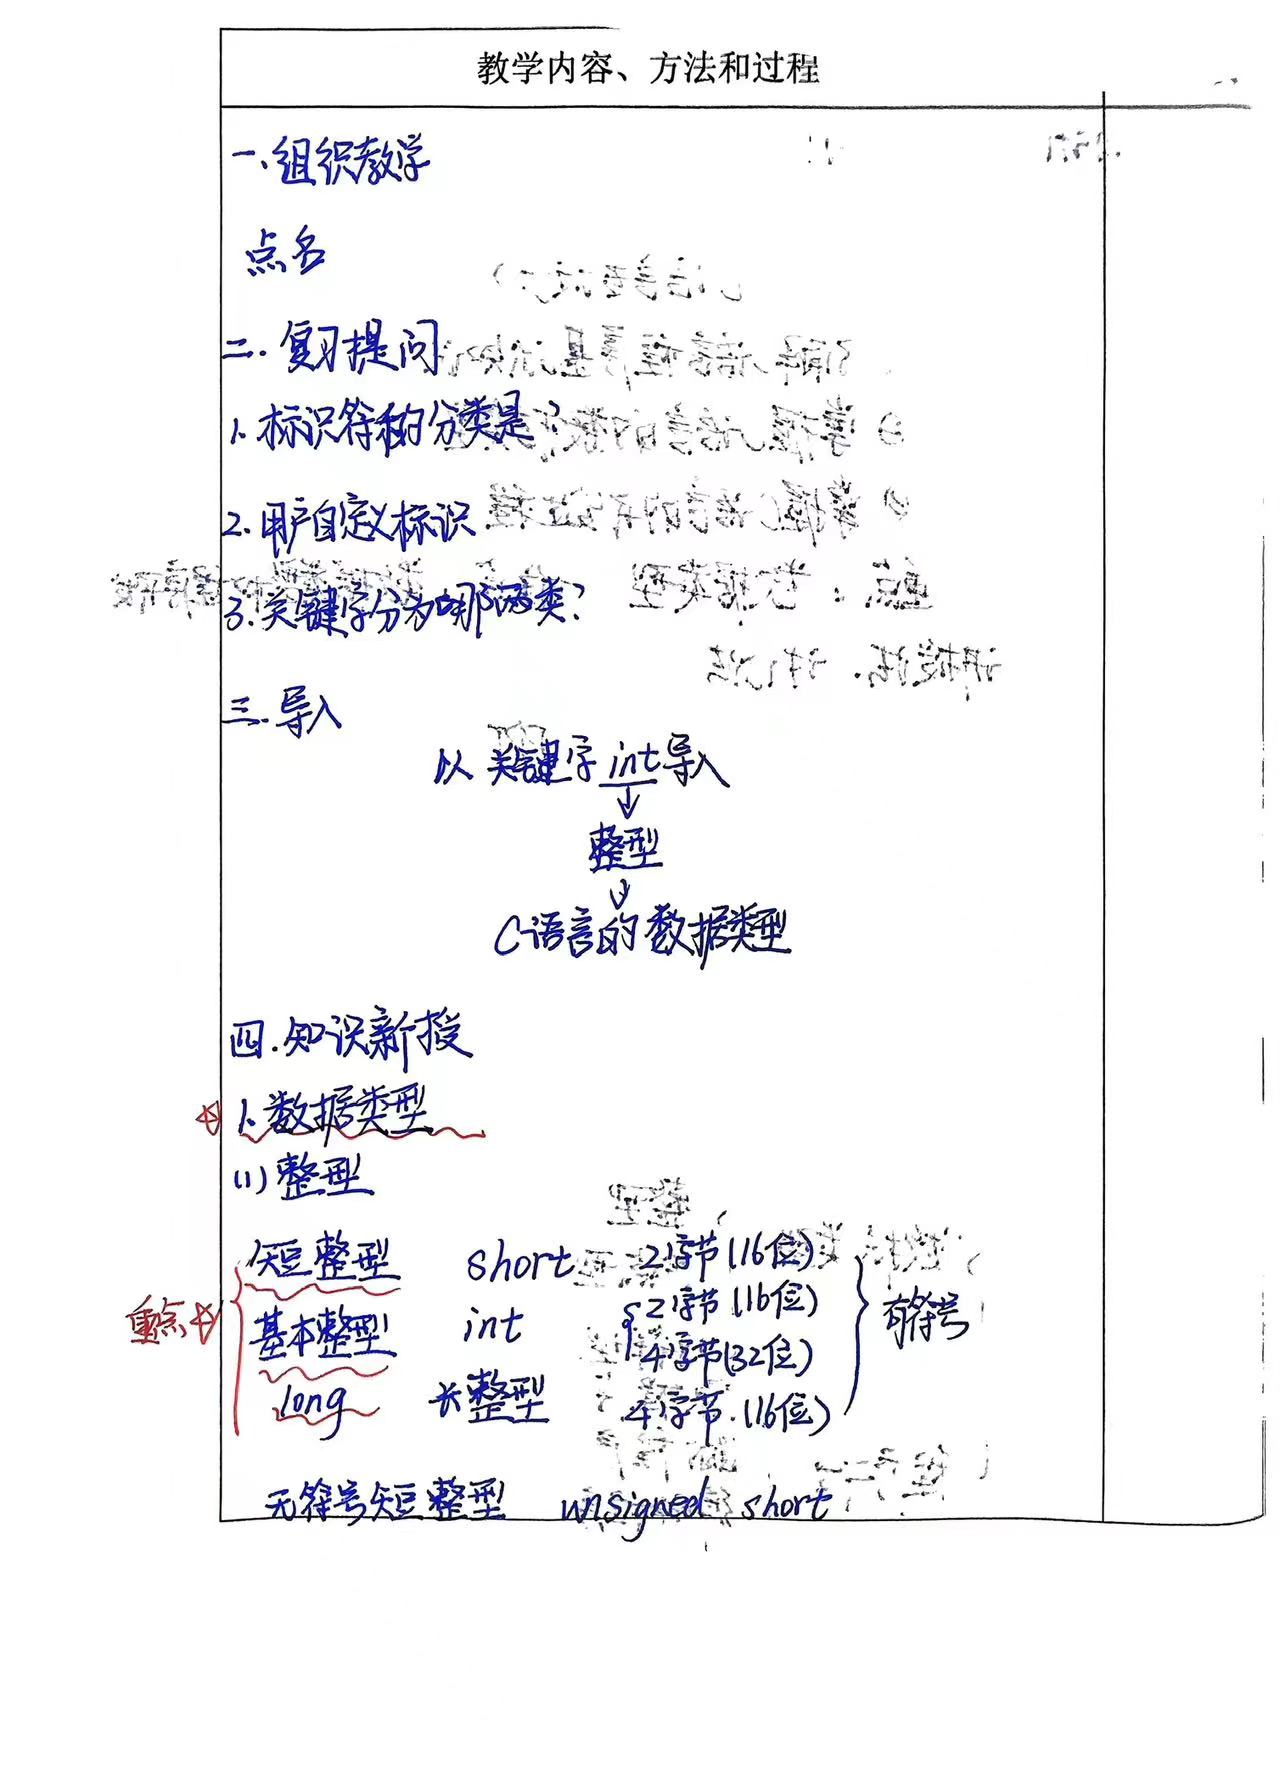 教学内容、方法和过程
一、组织教学
点名
二、复习提问
1.标识符的分类是?
2.用户自定义标识
3.关键字分为哪两类?
三.导入
以关键字int导入
整型
C语言的数据类型
四.知识新授
1.数据类型
(1)整型
短整型 short 2字节(16位)
重点 基本整型 int 2字节(16位) 有符号
4字节(32位)
long 长整型 4字节.(16位)
无符号短整型 unsigned short